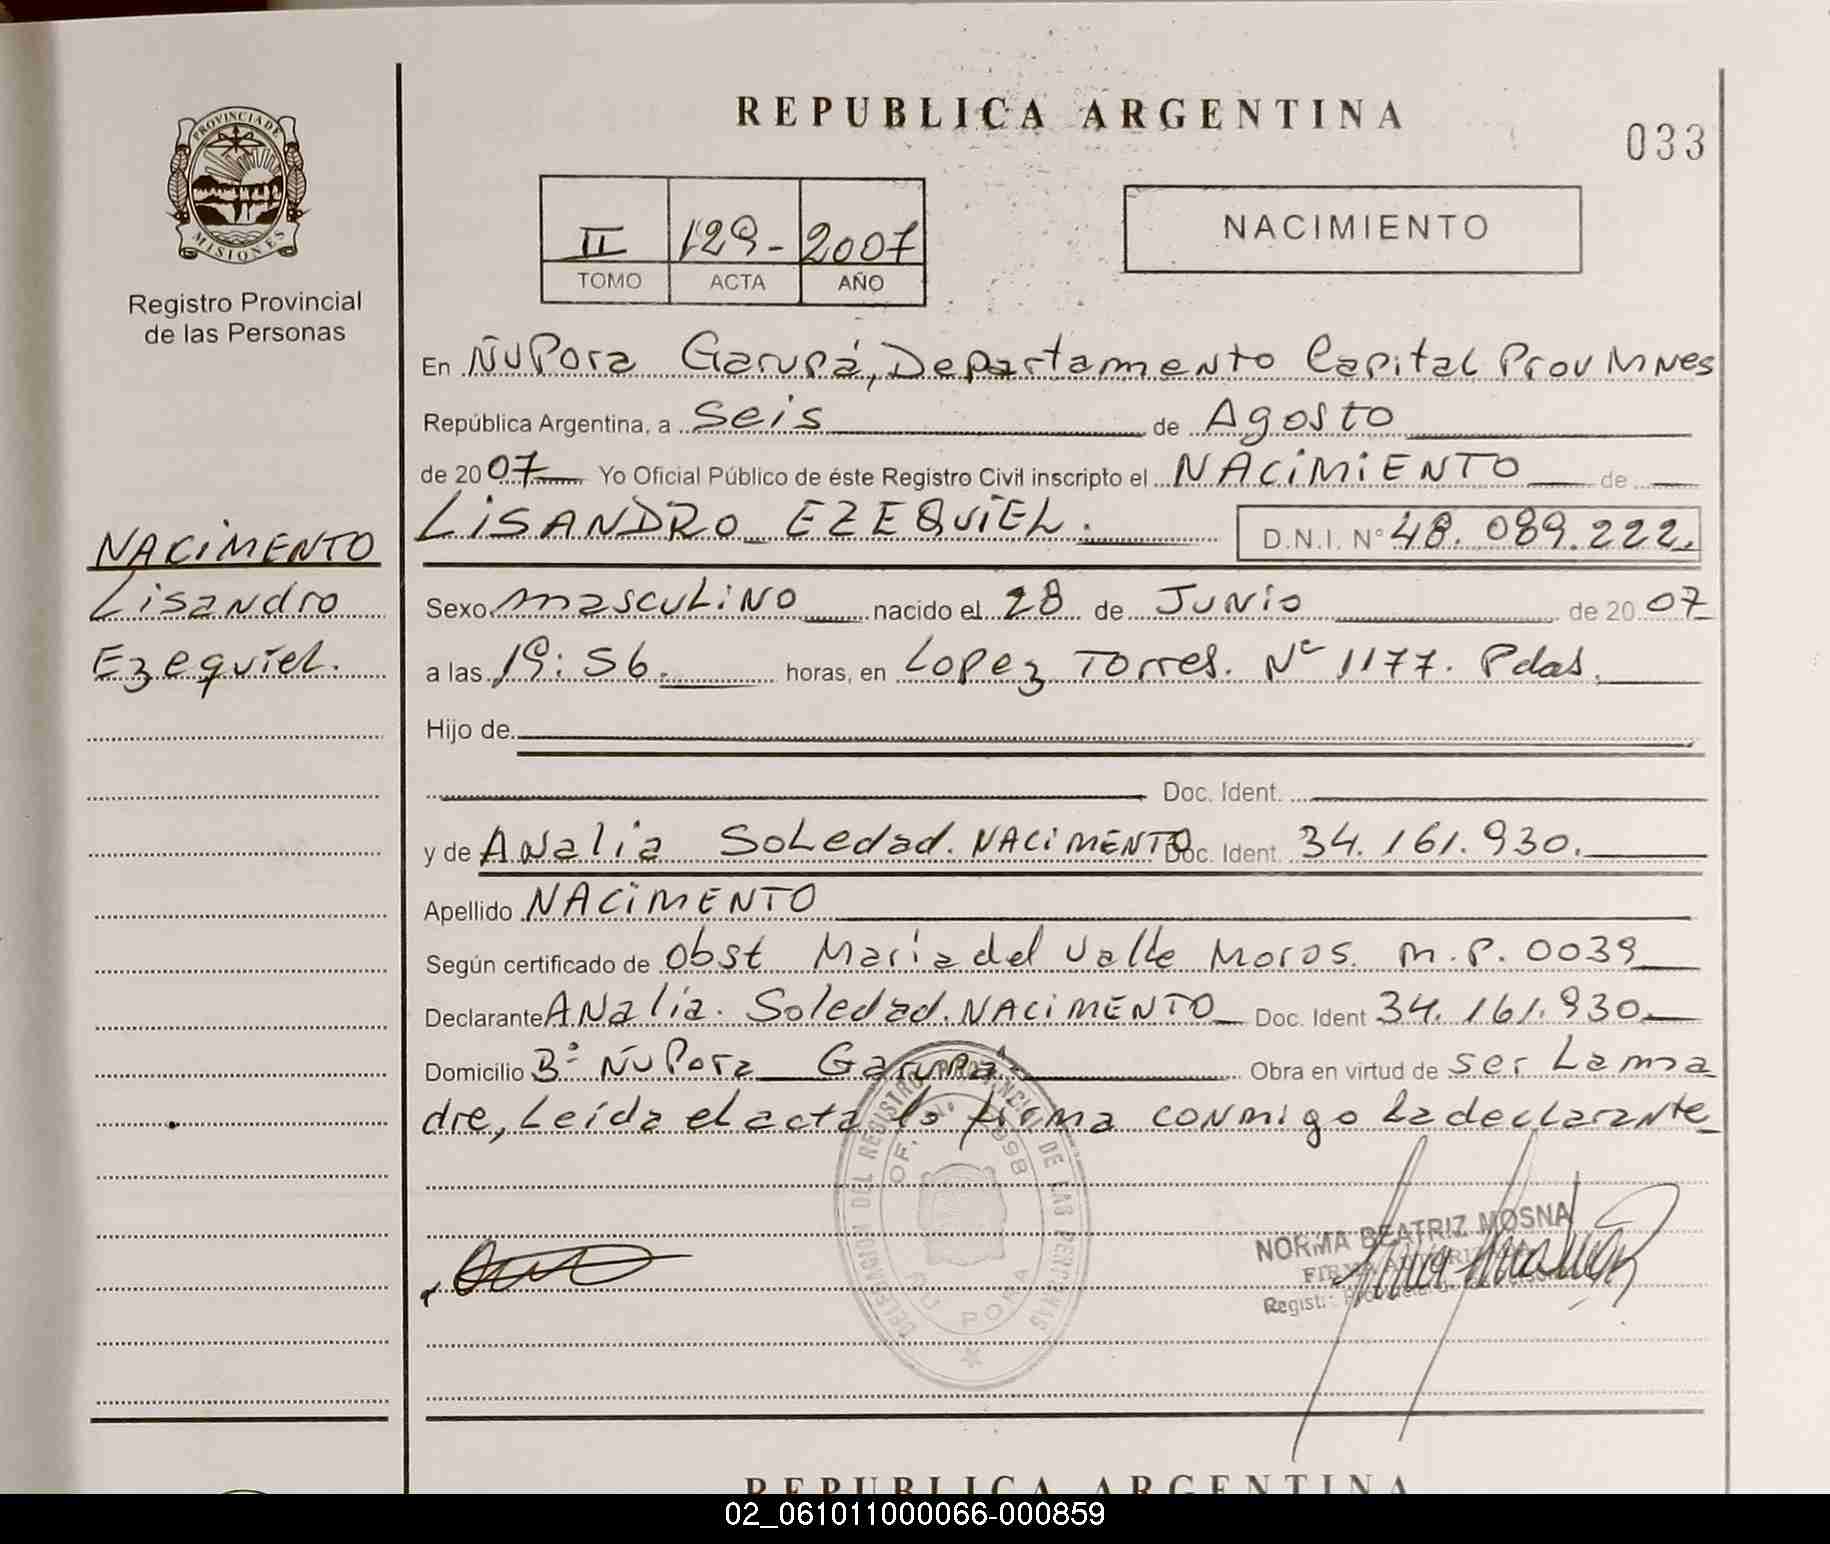 PROVINCIA DE
MISIONES
Registro Provincial
de las Personas
NACIMENTO
Lisandro
Ezequiel.
REPUBLICA ARGENTINA
033
II 129- 2007
TOMO ACTA AÑO
NACIMIENTO
En ÑuPora Garupá, Departamento Capital Prov Mnes
República Argentina, a Seis de Agosto
de 2007 Yo Oficial Público de éste Registro Civil inscripto el NACIMIENTO de
LISANDRO EZEQUIEL. D.N.I. N° 48.089.222.
Sexo masculino nacido el 28 de Junio de 2007
a las 19:56. horas, en Lopez Torres. N° 1177. Pdas.
Hijo de
Doc. Ident.
y de Analia Soledad. NACIMENTO Doc. Ident. 34.161.930.
Apellido NACIMENTO
Según certificado de obst Maria del Valle Moros. M.P. 0039
Declarante Analia. Soledad. NACIMENTO Doc. Ident 34.161.930.
Domicilio B° ÑuPora Garupá Obra en virtud de ser La ma
dre, Leída el acta la firma conmigo La declarante
DELEGACION DEL REGISTRO PROVINCIAL DE LAS PERSONAS
ÑU PORA
NORMA BEATRIZ MOSNA
REPUBLICA ARGENTINA
02_061011000066-000859